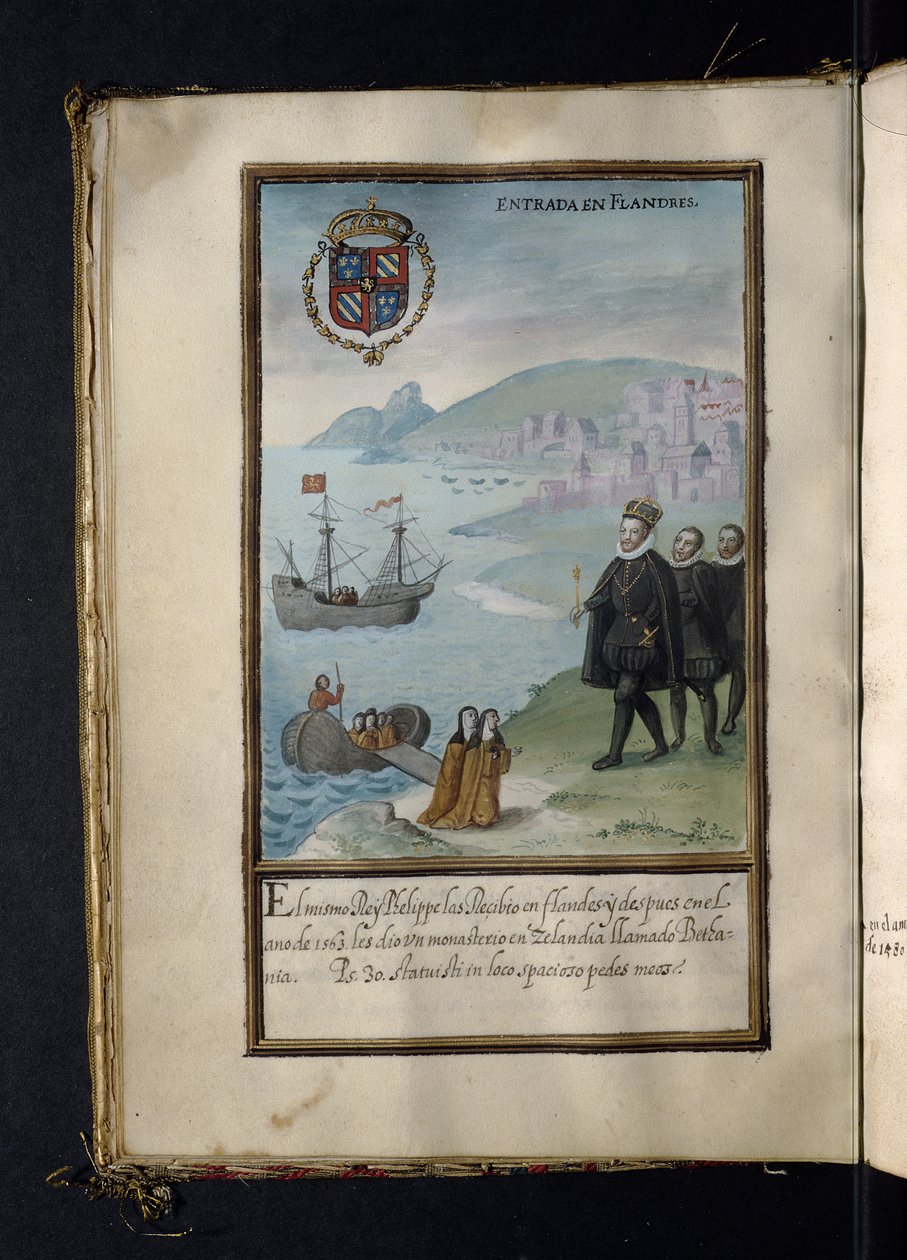 ENTRADA EN FLANDRES.
El mismo Rey Phelippe las Reçibio en flandes y despues en el
ano de 1563. les dio vn monasterio en Zelandia llamado Betha-
nia. Ps. 30. statuisti in loco spacioso pedes meos.
en el
de 1480